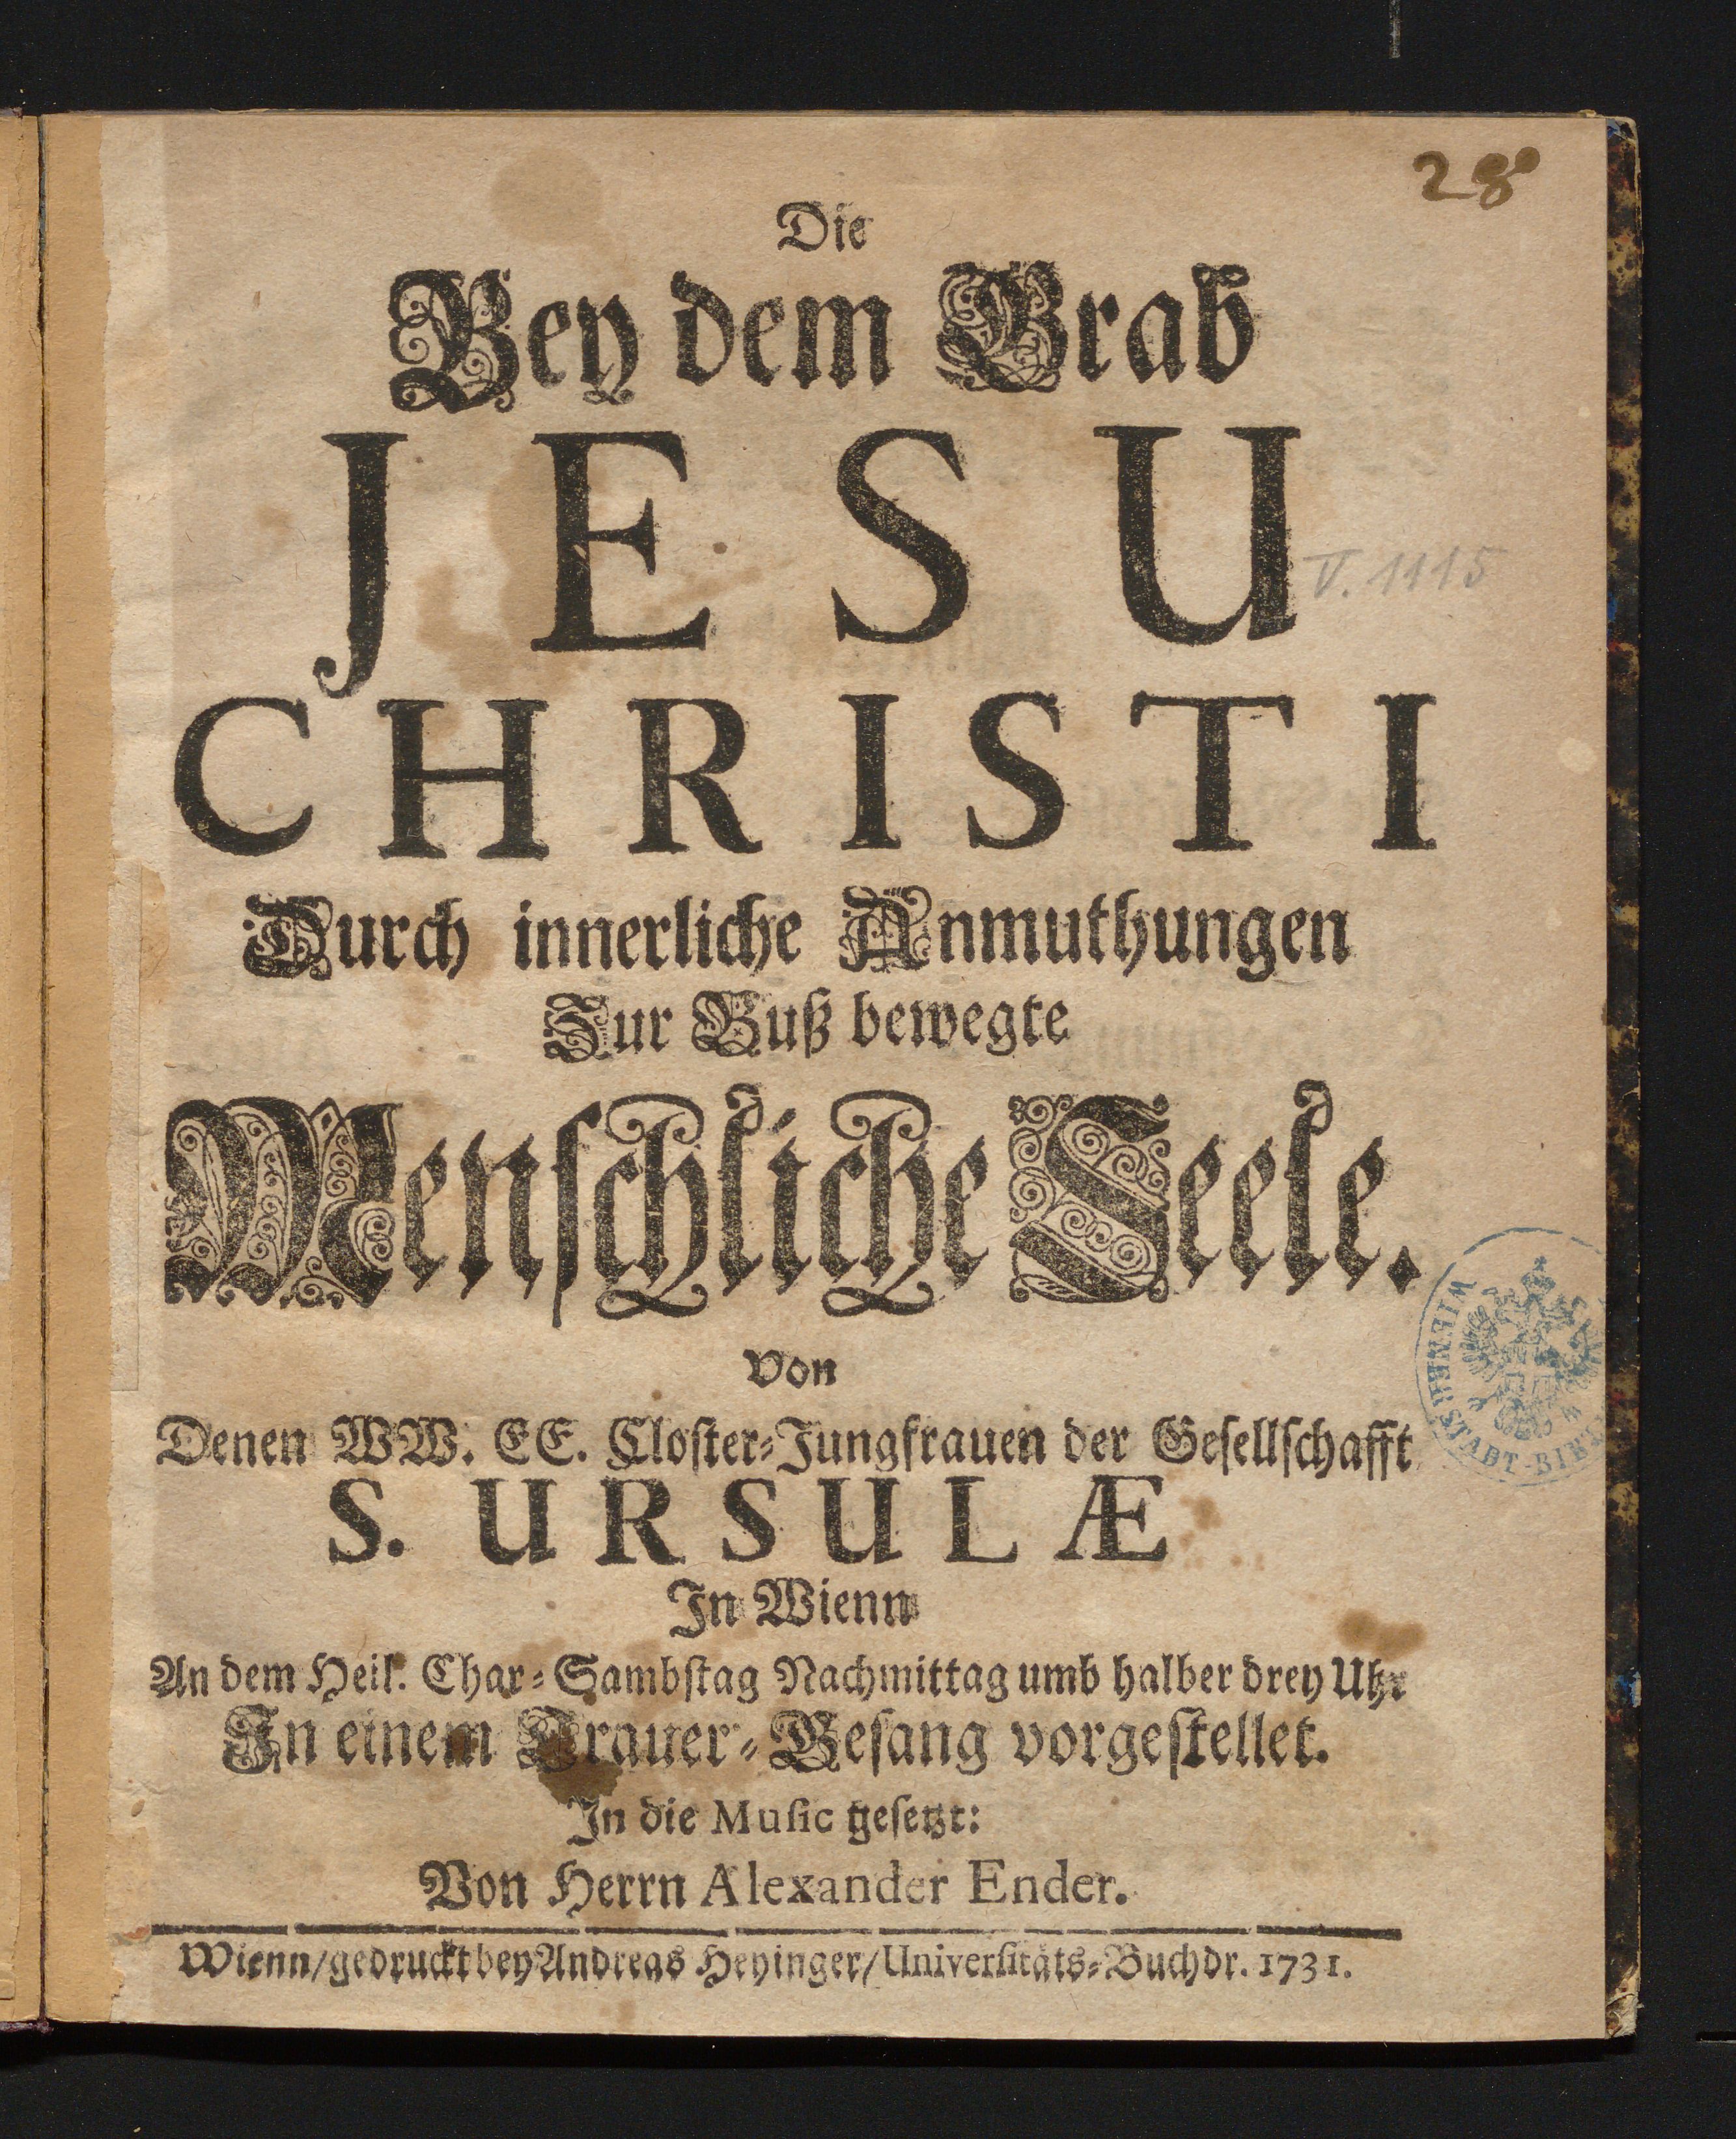 28
Die
Bey dem Grab
JESU
V. 1115
CHRISTI
Durch innerliche Anmuthungen
Zur Buß bewegte
Menschliche Seele.
Von
Denen WW. EE. Closter-Jungfrauen der Gesellschafft
S. URSULÆ
In Wienn
An dem Heil. Char-Sambstag Nachmittag umb halber drey Uhr
In einem Trauer-Gesang vorgestellet.
In die Music gesetzt:
Von Herrn Alexander Ender.
Wienn/gedruckt bey Andreas Heyinger/Universitäts-Buchdr. 1731.
WIENER STADT-BIBL